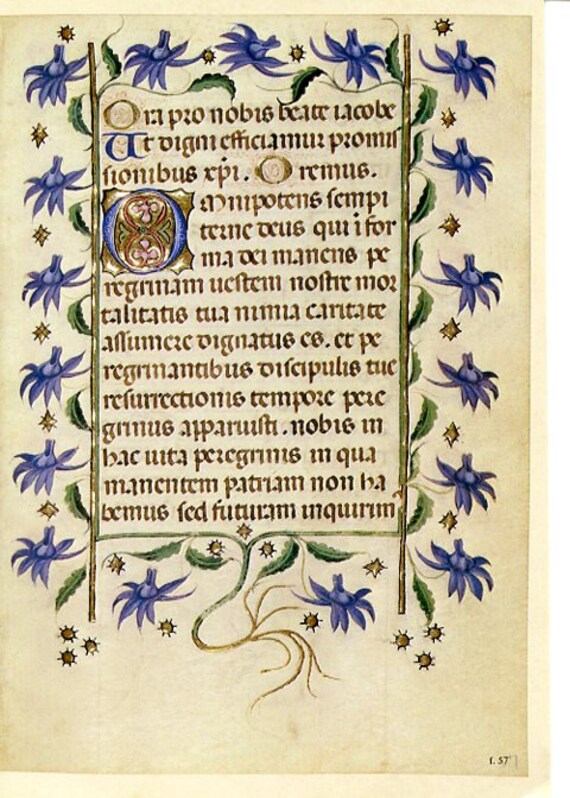 Ora pro nobis beate iacobe
Ut digni efficiamur promis
sionibus xp̄i. Oremus.
Omnipotens sempi
terne deus qui ī for
ma dei manens pe
regrinam uestem nostre mor
talitatis tua nimia caritate
assumere dignatus es. et pe
regrinantibus discipulis tue
resurrectionis tempore pere
grinus apparuisti. nobis in
hac uita peregrinis in qua
manentem patriam non ha
bemus sed futuram inquirim
f. 57